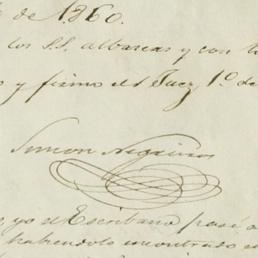 de 1860.
los S.S. albaceas y con
y firmo el S. Juez 1º de
Simon
yo el Escribano pasé a
habiendolo encontrado